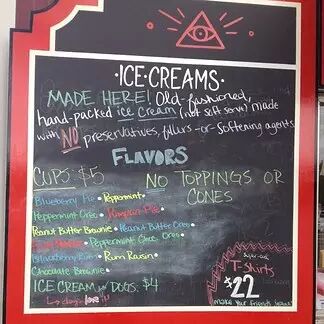 ·ICE·CREAMS·
MADE HERE! Old-fashioned,
hand-packed ice cream (not soft serve) made
with NO preservatives, fillers -or- softening agents
FLAVORS
CUPS $5
NO TOPPINGS OR
CONES
Blueberry Pie • Peppermint •
Peppermint Oreo • Pie •
Peanut Butter Brownie • Peanut Butter Oreo •
• Peppermint Choc. Oreo •
Blackberry Rum • Rum Raisin •
Chocolate Brownie •
ICE CREAM for DOGS: $4
↳ dogs love it!
super-cool
T-Shirts
$22
Make Your Friends Jealous!